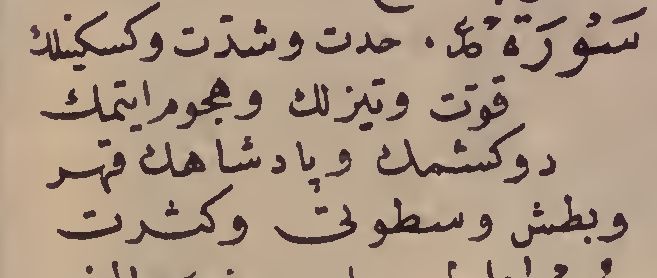 سَوْرَة حدت وشدّت وكسكينلك
قوّت وتيزلك وهجوم ايتمك
دوكشمك و پادشاهك قهر
و بطش و سطوتى و كثرت